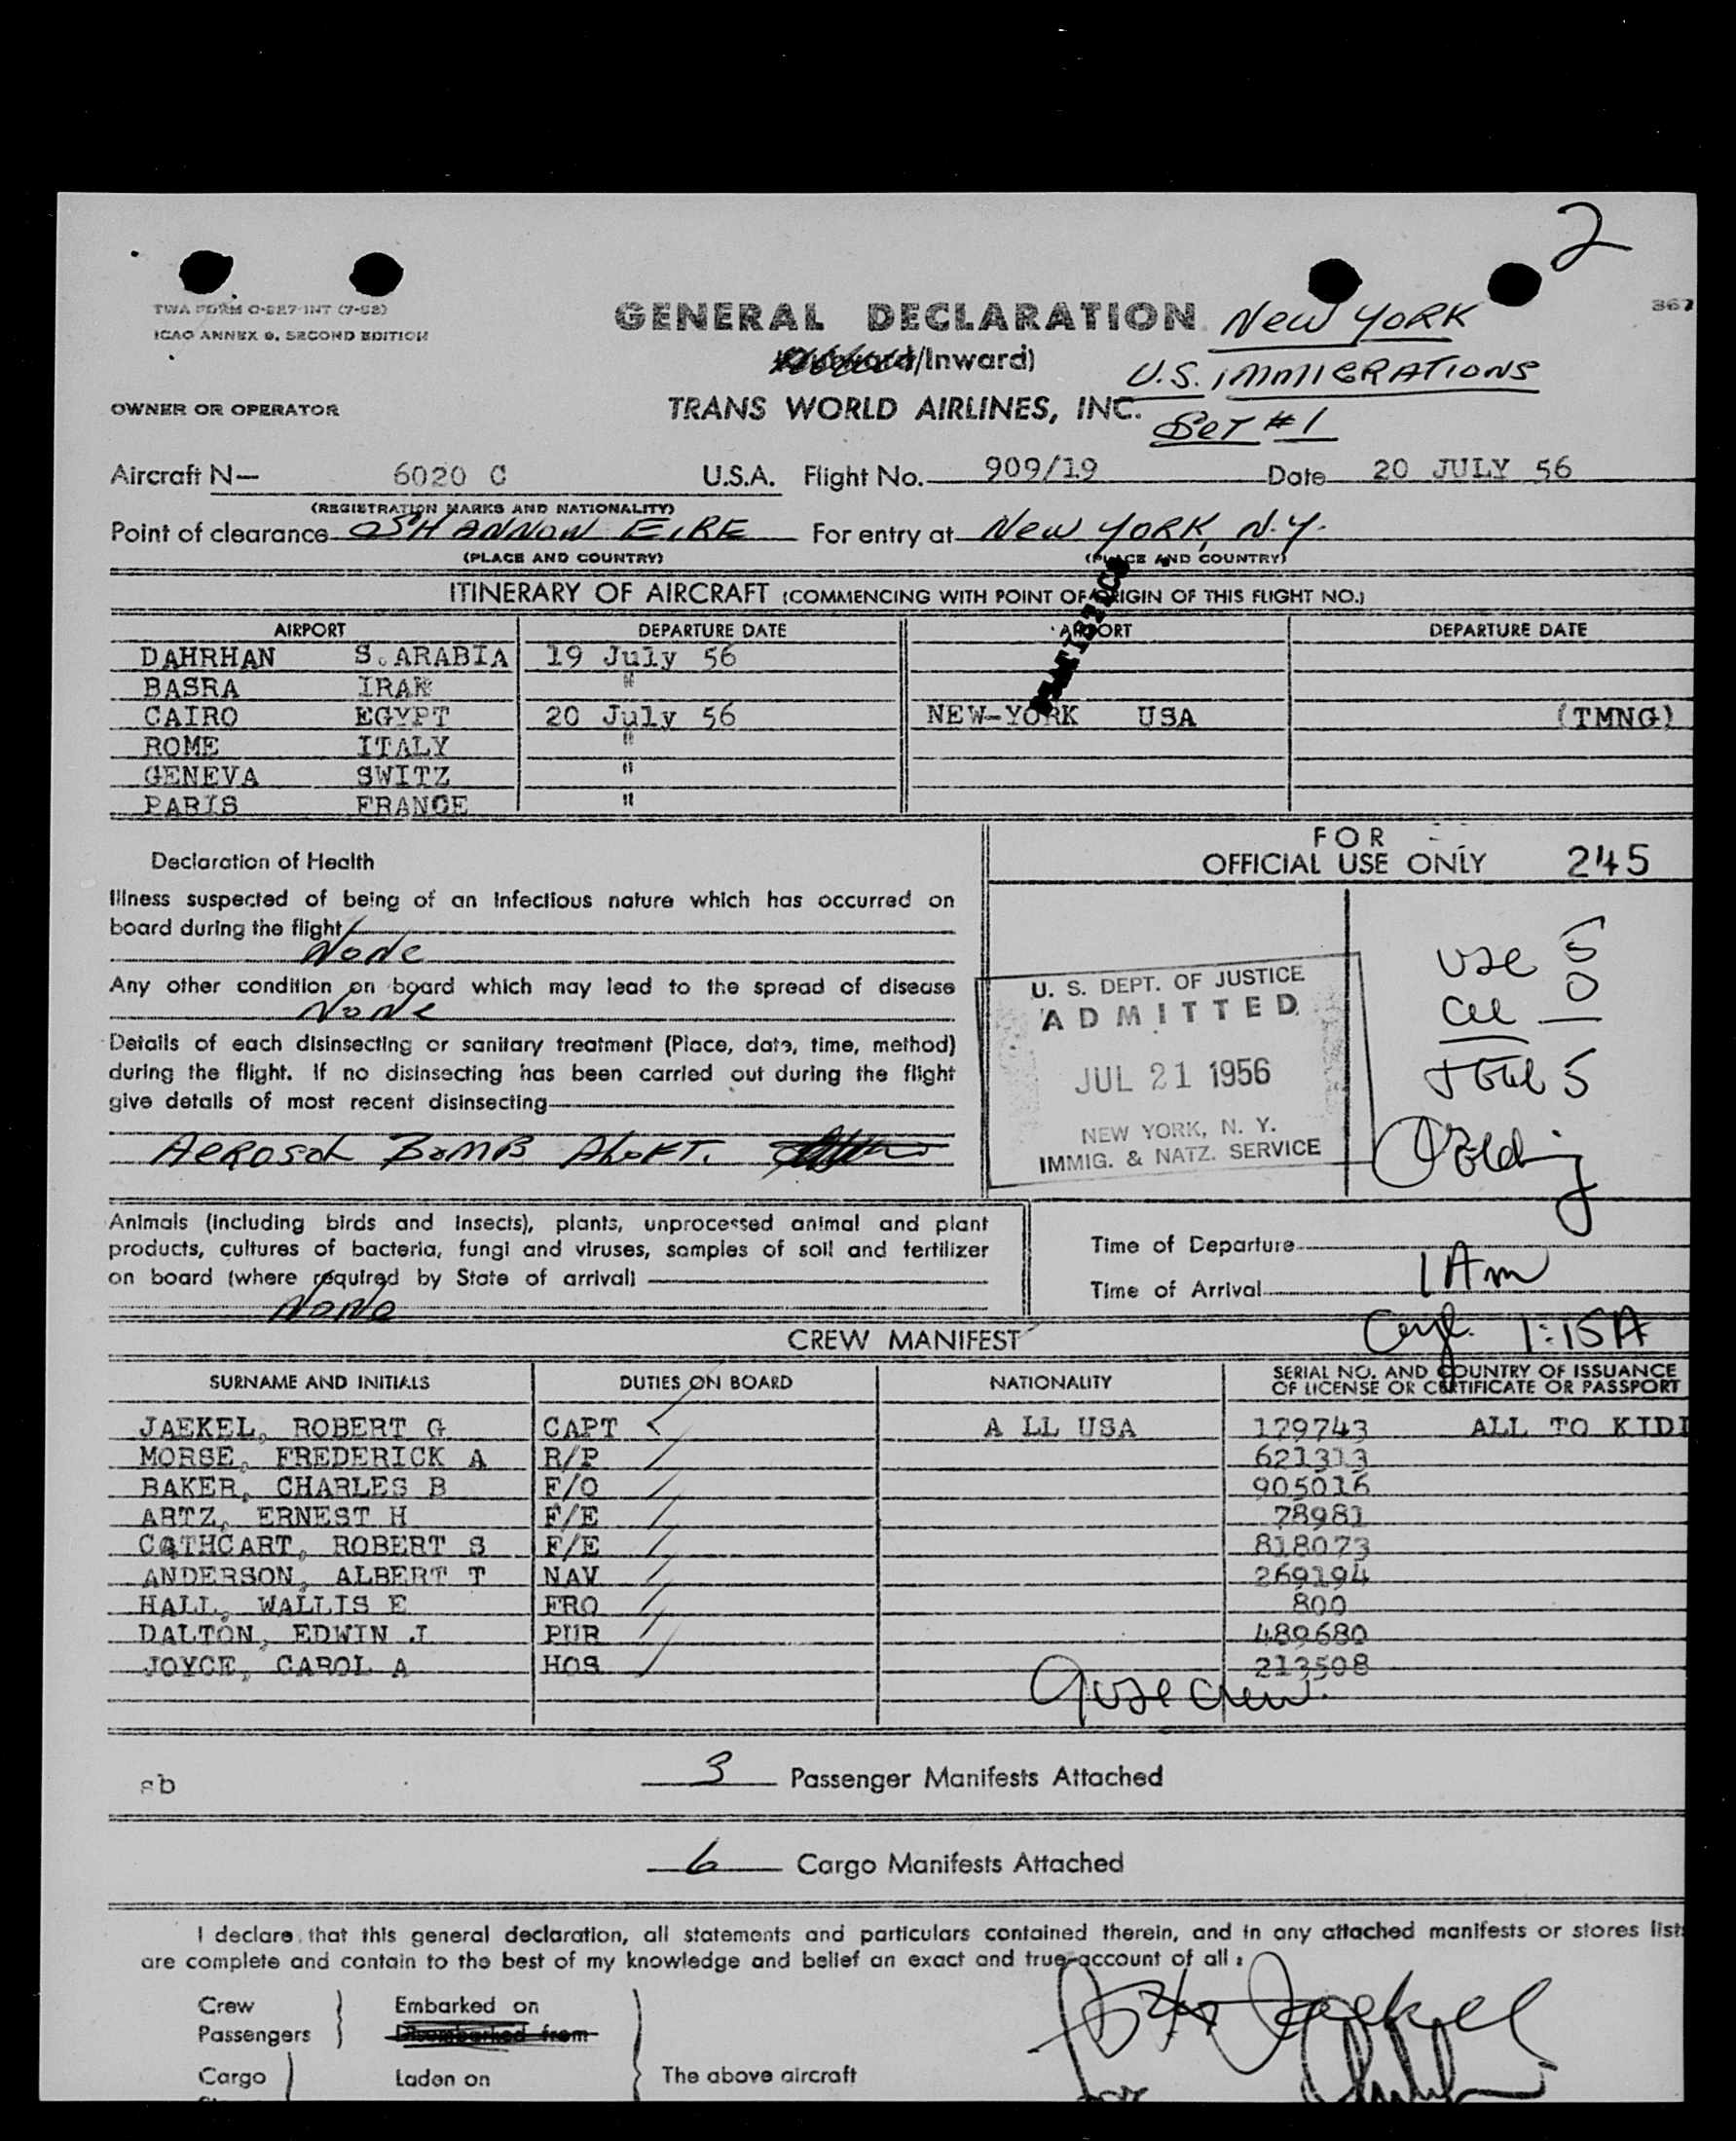 2
TWA FORM O-527-INT (7-52)
ICAO ANNEX 9, SECOND EDITION
GENERAL DECLARATION
New York
367
/Inward)
U.S. IMMIGRATIONS
OWNER OR OPERATOR
TRANS WORLD AIRLINES, INC.
Set #1
Aircraft N— 6020 C U.S.A. Flight No. 909/19 Date 20 JULY 56
(REGISTRATION MARKS AND NATIONALITY)
Point of clearance SHANNON EIRE For entry at New York, N.Y.
(PLACE AND COUNTRY) (PLACE AND COUNTRY)
ITINERARY OF AIRCRAFT (COMMENCING WITH POINT OF ORIGIN OF THIS FLIGHT NO.)
AIRPORT DEPARTURE DATE AIRPORT DEPARTURE DATE
DAHRHAN S.ARABIA 19 July 56
BASRA "
CAIRO EGYPT 20 July 56 NEW-YORK USA (TMNG)
ROME ITALY "
GENEVA SWITZ "
PARIS FRANCE "
FOR
OFFICIAL USE ONLY 245
Declaration of Health
Illness suspected of being of an infectious nature which has occurred on
board during the flight
None
Any other condition on board which may lead to the spread of disease
None
Details of each disinsecting or sanitary treatment (Place, date, time, method)
during the flight. If no disinsecting has been carried out during the flight
give details of most recent disinsecting
AEROSOL BOMB ALOFT.
U. S. DEPT. OF JUSTICE
ADMITTED
JUL 21 1956
NEW YORK, N. Y.
IMMIG. & NATZ. SERVICE
USC 5
0
Total 5
Animals (including birds and insects), plants, unprocessed animal and plant
products, cultures of bacteria, fungi and viruses, samples of soil and fertilizer
on board (where required by State of arrival)
None
Time of Departure
Time of Arrival 1 Am
1:15A
CREW MANIFEST
SURNAME AND INITIALS DUTIES ON BOARD NATIONALITY SERIAL NO. AND COUNTRY OF ISSUANCE
OF LICENSE OR CERTIFICATE OR PASSPORT
JAEKEL, ROBERT G CAPT A LL USA 179743 ALL TO KIDL
MORSE, FREDERICK A R/P 621313
BAKER, CHARLES B F/O 905016
ARTZ, ERNEST H F/E 78981
CATHCART, ROBERT S F/E 818073
ANDERSON, ALBERT T NAV 269194
HALL, WALLIS E FRO 800
DALTON, EDWIN J PUR 489680
JOYCE, CAROL A HOS 213508
9 USC Crew.
sb
3 Passenger Manifests Attached
6 Cargo Manifests Attached
I declare that this general declaration, all statements and particulars contained therein, and in any attached manifests or stores lists
are complete and contain to the best of my knowledge and belief an exact and true account of all :
Crew Embarked on
Passengers Disembarked from
Cargo Laden on The above aircraft
Jaekel